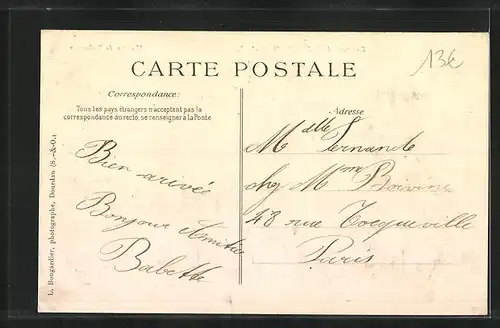 13€
CARTE POSTALE
Correspondance:
Tous les pays étrangers n'acceptent pas la
correspondance au recto, se renseigner à la Poste
Adresse
Bien arrivée
Bonjour Amitiés
Babette
Mdlle Fernande
chez Mme Boivin
48 rue Tocqueville
Paris
L. Bougardier, photographe, Dourdan (S.-&-O.)